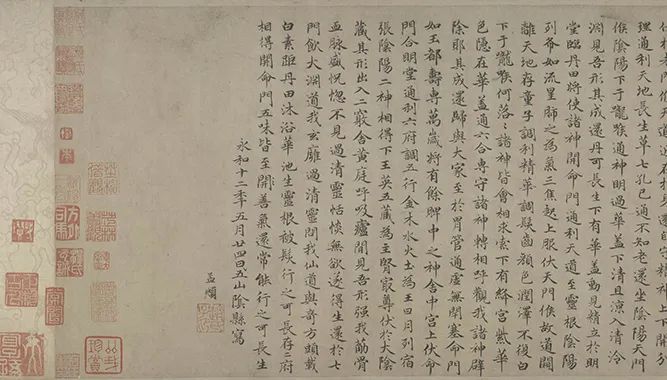 理通利天地長生草七孔已通不知老還坐陰陽天門
候陰陽下于嚨喉通神明過華蓋下清且涼入清泠
淵見吾形其成還丹可長生下有華蓋動見精立於明
堂臨丹田將使諸神開命門通利天道至靈根陰陽
列布如流星肺之為氣三焦起上服伏天門候故道闚
離天地存童子調利精華調髮齒顏色潤澤不復白
下于嚨喉何落〻諸神皆會相求索下有絳宮紫華
色隱在華蓋通六合專守諸神轉相呼觀我諸神辟
除耶其成還歸與大家至於胃管通虛無閉塞命門
如玉都壽專萬歲將有餘脾中之神舍中宮上伏命
門合明堂通利六府調五行金木水火土為王日月列宿
張陰陽二神相得下玉英五藏為主腎最尊伏於大陰
藏其形出入二竅舍黃庭呼吸廬間見吾形強我筋骨
血脉盛恍惚不見過清靈恬惔無欲遂得生還於七
門飲大淵道我玄雍過清靈問我仙道與奇方頭載
白素距丹田沐浴華池生靈根被髮行之可長存二府
相得開命門五味皆至開善氣還常能行之可長生
永和十二年五月廿四日五山陰縣寫
孟頫